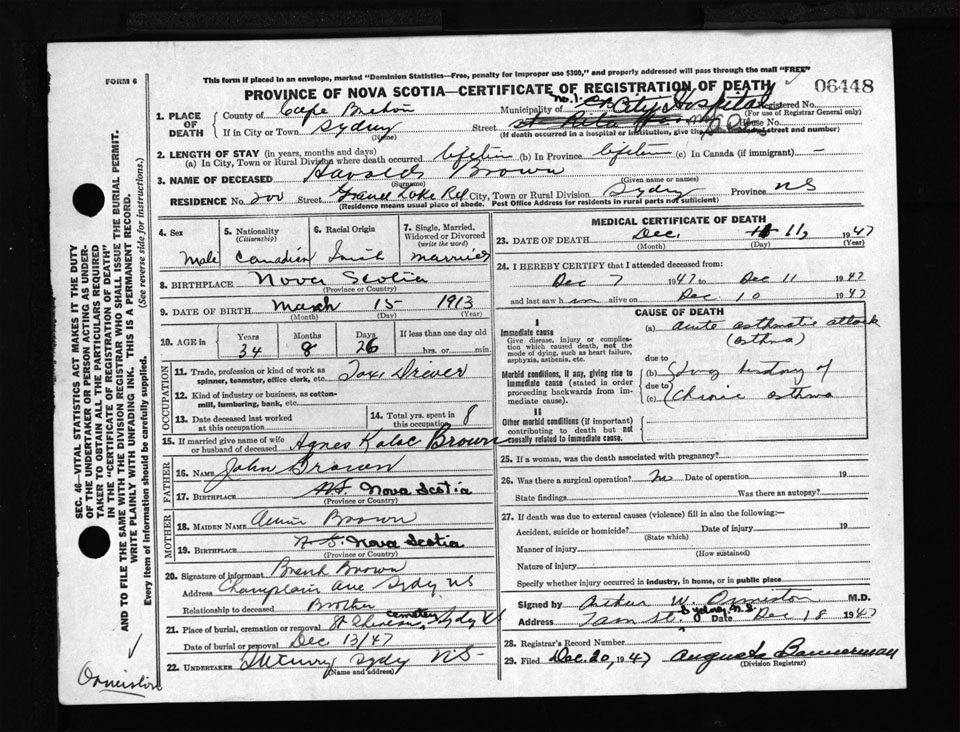 FORM 6
This form if placed in an envelope, marked "Dominion Statistics—Free, penalty for improper use $300," and properly addressed will pass through the mail "FREE"
PROVINCE OF NOVA SCOTIA—CERTIFICATE OF REGISTRATION OF DEATH
06448
1. PLACE OF DEATH
County of Cape Breton
Municipality of No. 1. City Hospital
Registered No.
(For use of Registrar General only)
If in City or Town Sydney
(Name)
Street St Rita House No.
(If death occurred in a hospital or institution, give the name instead of street and number)
2. LENGTH OF STAY (in years, months and days)
(a) In City, Town or Rural Division where death occurred lifetime (b) In Province lifetime (c) In Canada (if immigrant) —
3. NAME OF DECEASED Harold Brown
(Surname) (Given name or names)
RESIDENCE No. 200 Street Grand Lake Rd City, Town or Rural Division Sydney Province NS
(Residence means usual place of abode. Post Office Address for residents in rural parts not sufficient)
4. Sex Male
5. Nationality (Citizenship) Canadian
6. Racial Origin
7. Single, Married, Widowed or Divorced (write the word) married
8. BIRTHPLACE Nova Scotia
(Province or Country)
9. DATE OF BIRTH March 15 1913
(Month) (Day) (Year)
10. AGE in Years 34 Months 8 Days 26 If less than one day old hrs. or min.
OCCUPATION
11. Trade, profession or kind of work as spinner, teamster, office clerk, etc. Taxi Driver
12. Kind of industry or business, as cotton-mill, lumbering, bank, etc.
13. Date deceased last worked at this occupation
14. Total yrs. spent in this occupation 8
15. If married give name of wife or husband of deceased Agnes Brown
FATHER
16. NAME John Brown
17. BIRTHPLACE N.S. Nova Scotia
(Province or Country)
MOTHER
18. MAIDEN NAME Annie Brown
19. BIRTHPLACE N S. Nova Scotia
(Province or Country)
20. Signature of informant Brown
Address Champlain Ave Sydy NS
Relationship to deceased Brother
21. Place of burial, cremation or removal cemetery, Sydy NS
Date of burial or removal Dec 13/47
22. UNDERTAKER Sydy NS—
(Name and address)
MEDICAL CERTIFICATE OF DEATH
23. DATE OF DEATH Dec. 11, 1947
(Month) (Day) (Year)
24. I HEREBY CERTIFY that I attended deceased from
Dec 7 1947 to Dec 11 1947
and last saw him alive on Dec 10 1947
CAUSE OF DEATH
I
Immediate cause
Give disease, injury or complication which caused death, not the mode of dying, such as heart failure, asphyxia, asthenia, etc.
(a) acute asthmatic attack
(asthma)
Morbid conditions, if any, giving rise to immediate cause (stated in order proceeding backwards from immediate cause).
due to
(b) Long history of
due to
(c) Chronic asthma
II
Other morbid conditions (if important) contributing to death but not causally related to immediate cause.
25. If a woman, was the death associated with pregnancy?
26. Was there a surgical operation? No Date of operation 19
State findings Was there an autopsy?
27. If death was due to external causes (violence) fill in also the following:—
Accident, suicide or homicide? Date of injury 19
(State which)
Manner of injury
(How sustained)
Nature of injury
Specify whether injury occurred in industry, in home, or in public place
Signed by Arthur W. Ormiston M.D.
Address St. Sydney N.S. Date Dec 18 1947
28. Registrar's Record Number
29. Filed Dec. 20, 1947 Augusta Bannerman
(Division Registrar)
SEC. 46—VITAL STATISTICS ACT MAKES IT THE DUTY
OF THE UNDERTAKER OR PERSON ACTING AS UNDER-
TAKER TO OBTAIN ALL THE PARTICULARS REQUIRED
IN THE "CERTIFICATE OF REGISTRATION OF DEATH"
AND TO FILE THE SAME WITH THE DIVISION REGISTRAR WHO SHALL ISSUE THE BURIAL PERMIT.
WRITE PLAINLY WITH UNFADING INK. THIS IS A PERMANENT RECORD.
Every item of information should be carefully supplied. (See reverse side for instructions.)
Ormiston